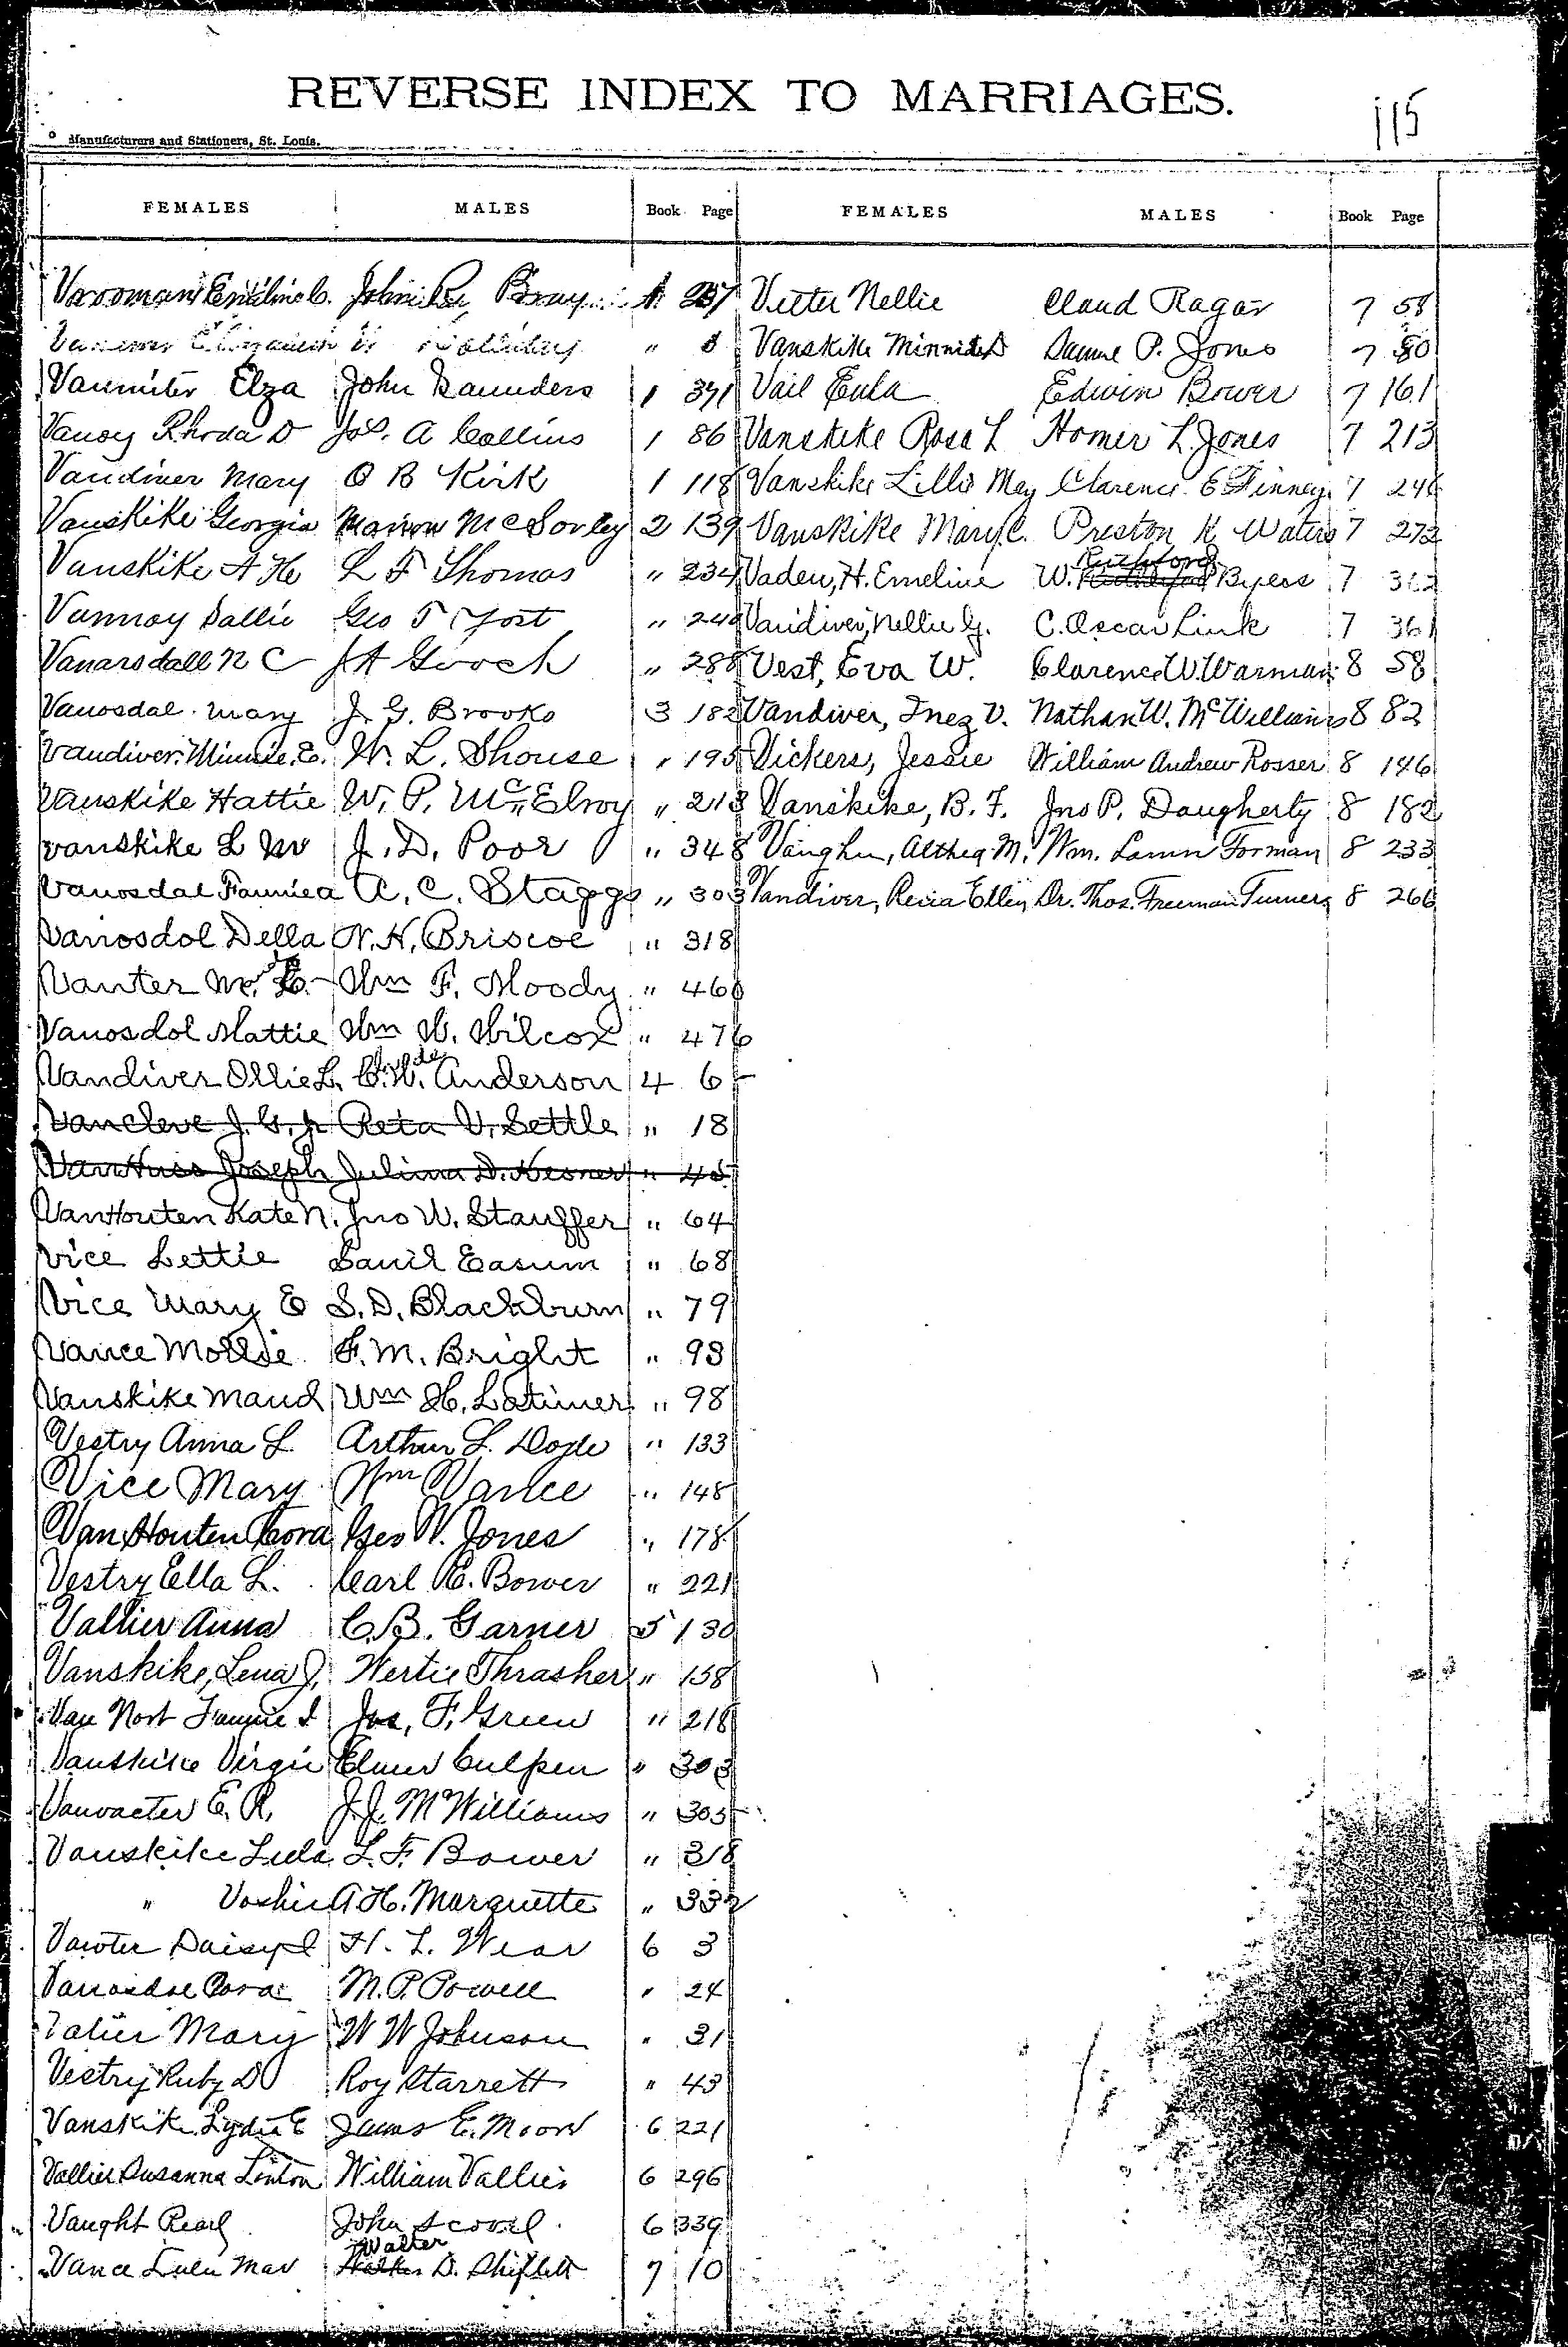 REVERSE INDEX TO MARRIAGES.
115
Manufacturers and Stationers, St. Louis.
FEMALES MALES Book Page FEMALES MALES Book Page
Vrooman C. John Bray
" 8
Vanmiter Elza John Saunders 1 391
Vanoy Rhoda D Jos. A Collins 1 86
Vandiver Mary O B Kirk 1 118
Vanskike Georgia Marion McSorley 2 139
Vanskike A H L F Thomas " 234
Vannoy Sallie Geo T Yost " 240
Vanarsdall N C J A Gooch " 288
Vanosdal Mary J. G. Brooks 3 182
Vandiver. Minnie. E. W. L. Shouse " 195
Vanskike Hattie W. P. McElroy " 213
Vanskike L M J. D. Poor " 348
Vanosdal Fannie A. C. Staggs " 303
Vanosdol Della N. H. Briscoe " 318
Vanter M. E. Wm F. Moody " 460
Vanosdol Mattie Wm W. Wilcox " 476
Vandiver Ollie L. Anderson 4 6
Vancleve J. G. Jr Reta V. Settle " 18
VanHuss Joseph Julima D. Kesner " 45
VanHouten Kate N. Jno W. Stauffer " 64
Vice Lettie Saml Easum " 68
Vice Mary E S. D. Blackburn " 79
Vance Mollie F. M. Bright " 93
Vanskike Maud Wm H. Latimer " 98
Vestry Anna L Arthur L. " 133
Vice Mary Wm Vance " 148
Van Houten Cora Geo W. Jones " 178
Vestry Ella L. Carl E. Bower " 221
Vallier Anna C. B. Garner 5 130
Vanskike, Lena J. Wertie Thrasher " 158
Van Nort Fannie I Jos. F. Green " 218
Vanskike Virgie Elmer Culpen " 303
Vanvacter E. R. J. J. McWilliams " 305
Vanskike Lula L. F. Bower " 318
" A. H. Marquette " 332
Vawter Daisy I H. L. Wear 6 3
Vanosdol Cora M. P. Powell " 24
Mary W W Johnson " 31
Vestry Ruby D Roy Starrett " 43
Vanskike Lydia E James E. Moore 6 221
Vallier Susanna Linton William Vallier 6 296
Vaught Pearl John Scovil 6 339
Walter
Vance Lulu May D. Shiflett 7 10
Vetter Nellie Claud Ragar 7 58
Vanskike Minnie D Samuel P. Jones 7 80
Vail Eula Edwin Bower 7 161
Vanskike Rosa L Homer L. Jones 7 213
Vanskike Lillie May Clarence E Finney 7 246
Vanskike Mary C. Preston K Waters 7 272
Rushford
Vaden, H. Emeline W. Byers 7 312
Vandiver, Nellie G. C. Oscar Link 7 361
Vest, Eva W. Clarence W. Warman 8 58
Vandiver, Inez V. Nathan W. McWilliams 8 82
Vickers, Jessie William Andrew Rosser 8 146
Vanskike, B. F. Jno P. Daugherty 8 182
Vaughn, Althea M. Wm. Lamn Forman 8 233
Vandiver, Ellen Dr. Thos. Freeman Turner 8 266